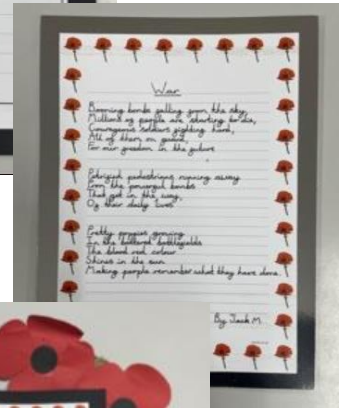 War
Booming bombs falling from the sky,
Millions of people are starting to die,
Courageous soldiers fighting hard,
All of them on guard,
For our freedom in the future
Petrified pedestrians running away
From the powerful bombs
That get in the way,
Of their daily lives
Pretty poppies growing
In the battered battlefields
The blood red colour
Shines in the sun
Making people remember what they have done.
By Jack M.